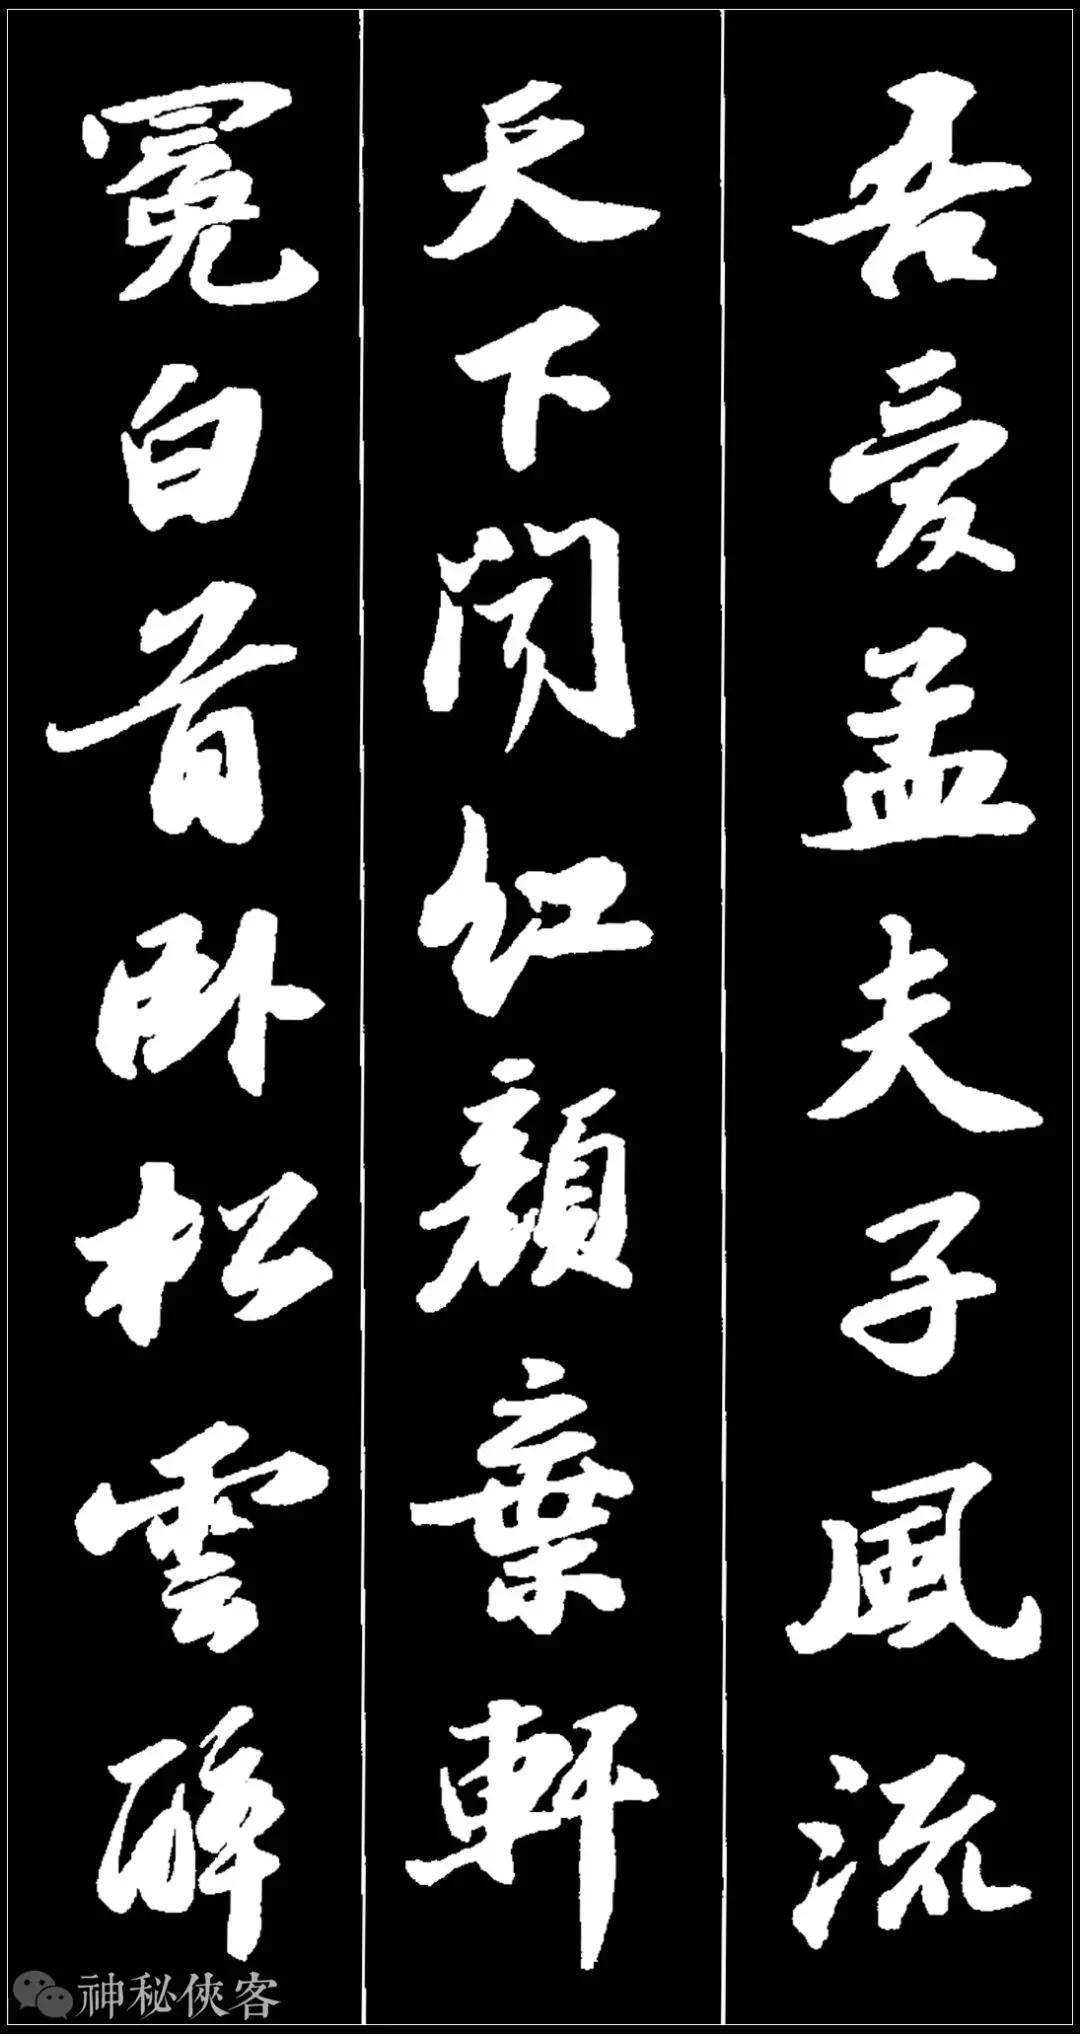 吾愛孟夫子風流
天下聞紅顏棄軒
冕白首卧松雲醉
神秘俠客